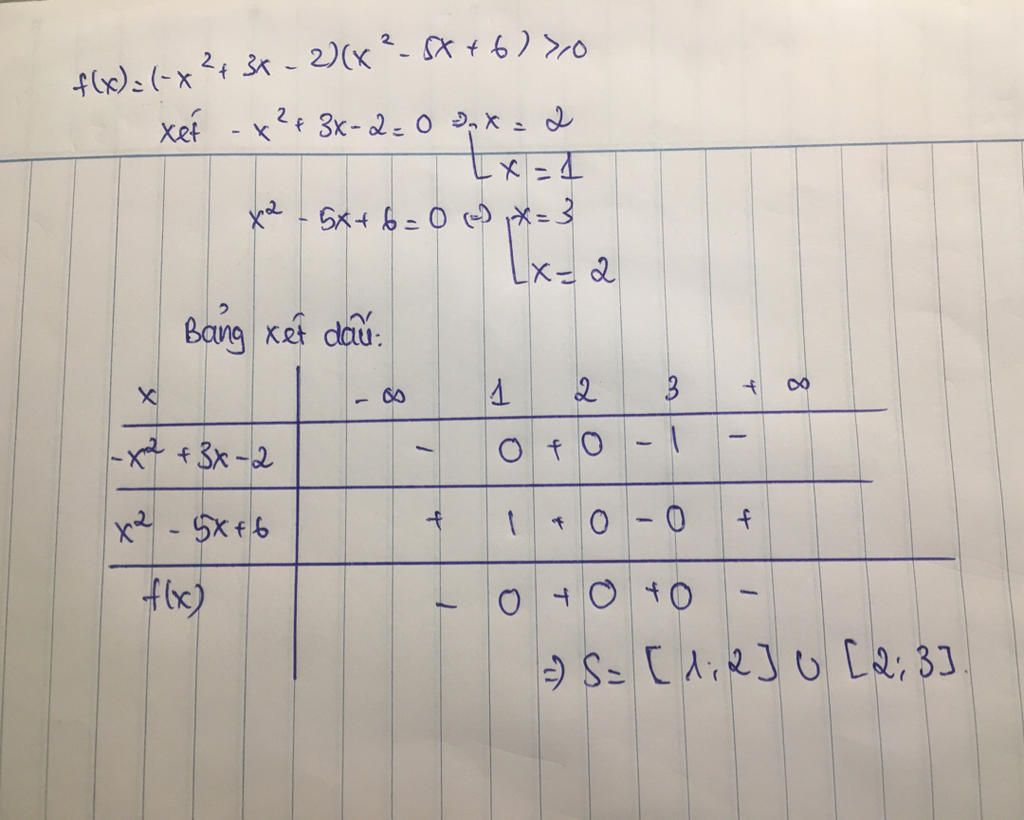 f(x)=(-x²+3x-2)(x²-5x+6)≥0
xét -x²+3x-2=0 => [x=2
x=1
x²-5x+6=0 (=) [x=3
x=2
Bảng xét dấu:
x -∞ 1 2 3 +∞
-x²+3x-2 - 0 + 0 - | -
x²-5x+6 + | + 0 - 0 +
f(x) - 0 + 0 + 0 -
=) S= [1;2] ∪ [2;3].